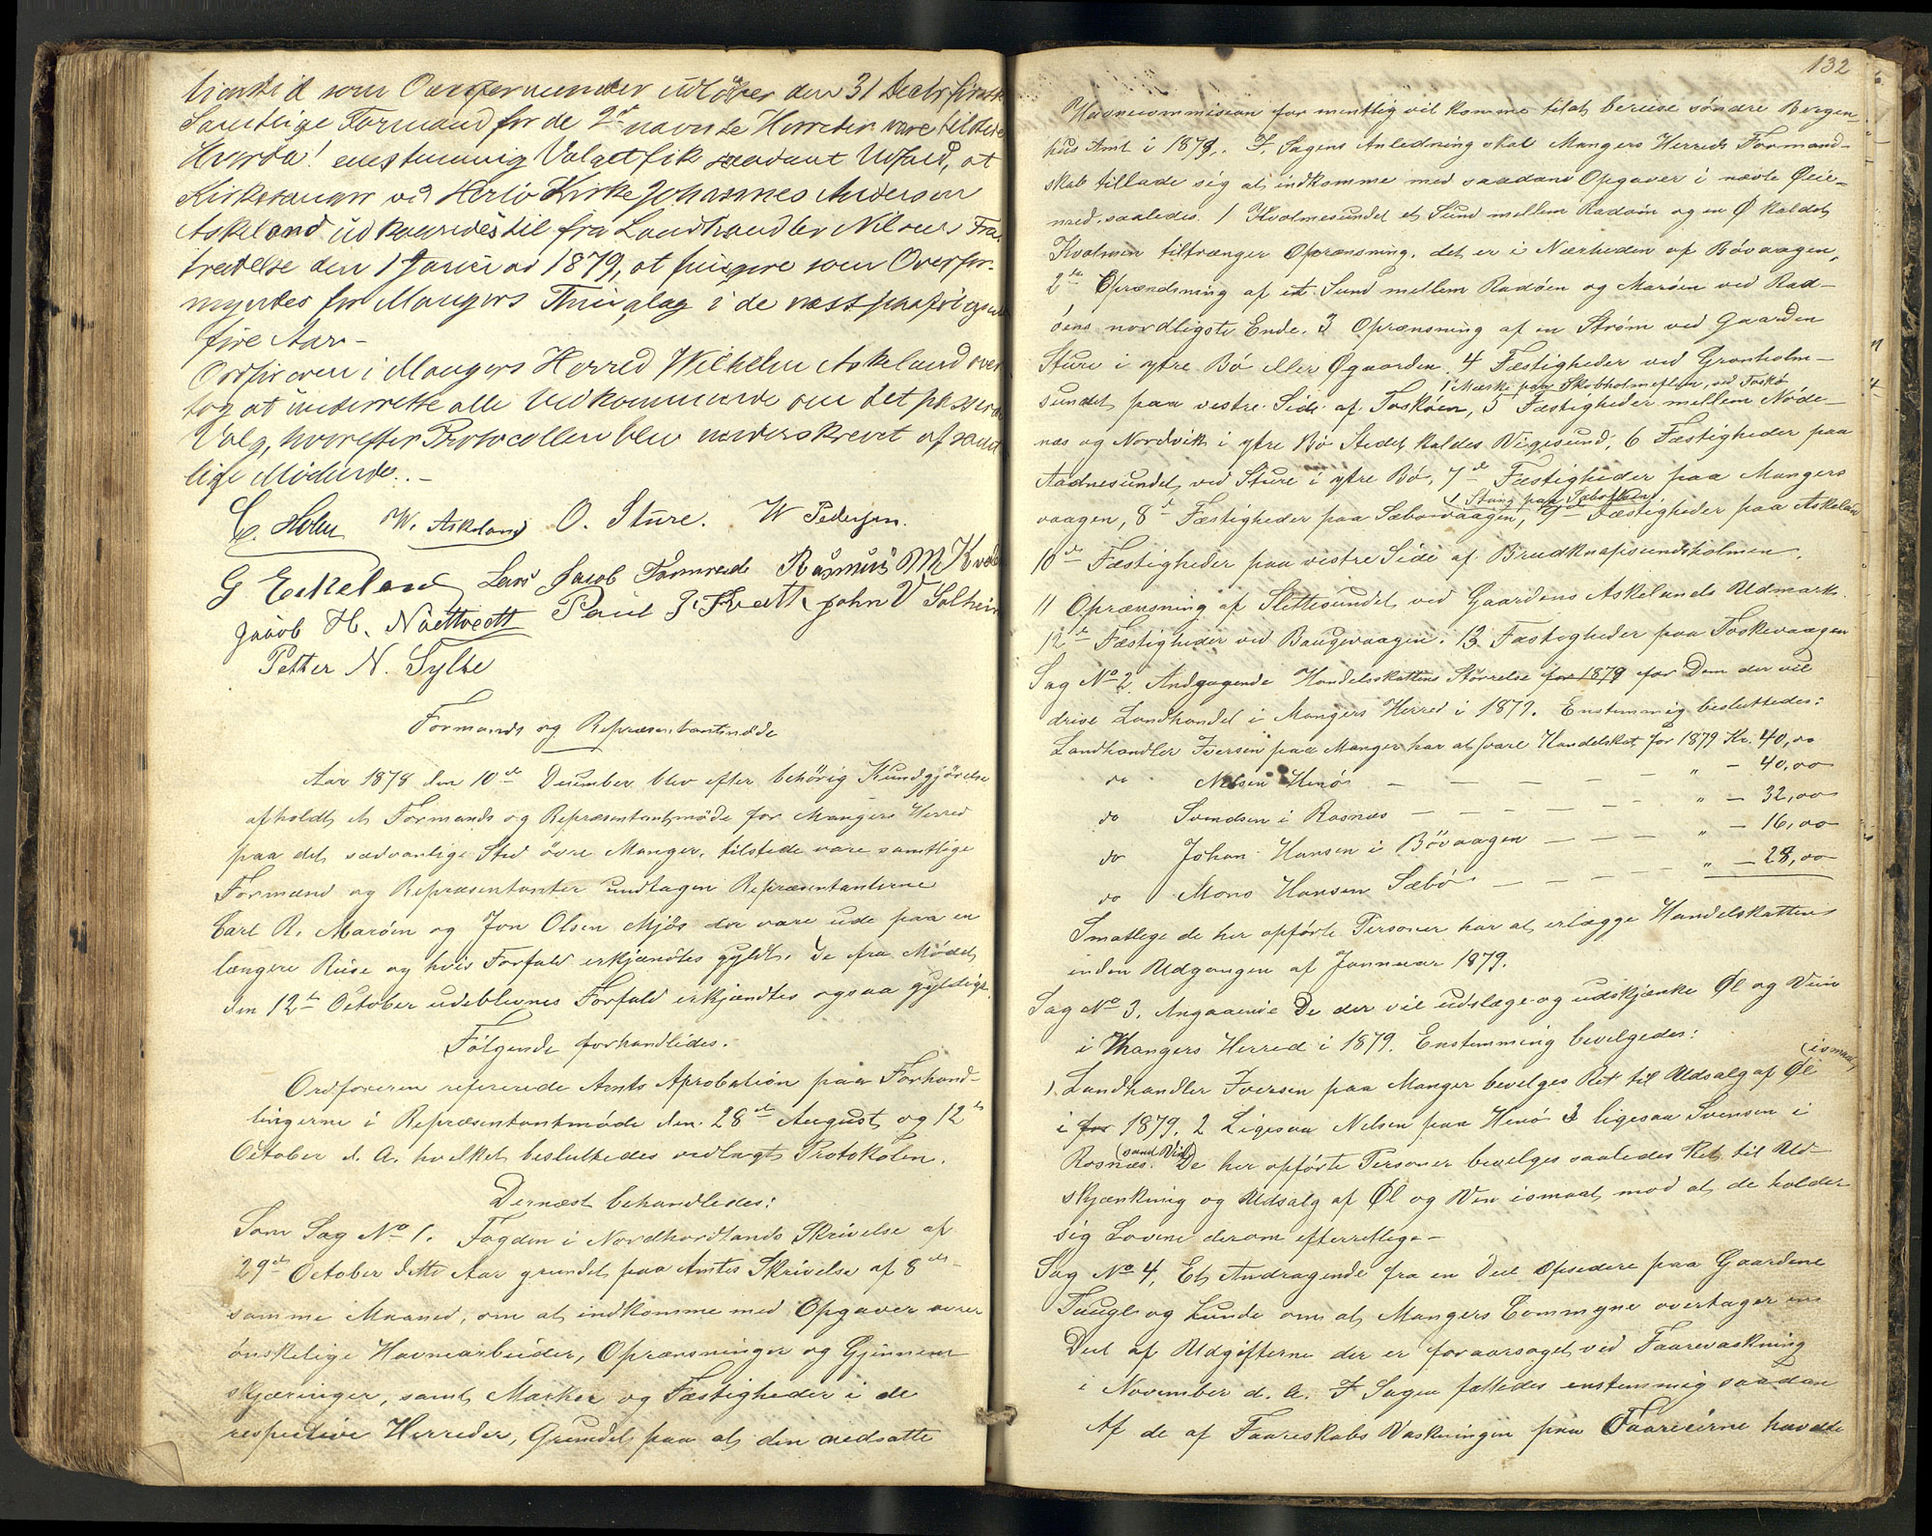 som Overformynder udløber den 31 Decbr
Samtlige Formænd for de 2de nævnte Herreder vare tilstede
Hvorda! enstemmig Valget fik saadant Udfald, at
Kirkesanger ved Herlö Kirke Johannes Andersen
Askeland udkaaredes til fra Landhandler Nilsens Fra-
trædelse den 1 Januar 1879, at fungere som Overfor-
mynder for Mangers Thinglag i de næst paafølgende
fire Aar –
Ordføreren i Mangers Herred Wilhelm Askeland over
tog at underrette alle Vedkommende om det passerede
Valg, hvorefter Protocollen blev underskrevet af samt
lige Mödende. . –
C. Holm W. Askeland O. Sture. W Pedersen.
G Eikeland Lars Jacob Rasmus M
Jacob H. Nöttvedt Paul J. John V Solheim
Petter N. Sylte
Formands og Repræsentantmöde
Aar 1878 den 10de Desember blev efter behörig Kundgjörelse
afholdt et Formands og Repræsentantmöde for Mangers Herred
paa det sædvanlige Sted övre Manger, tilstede vare samtlige
Formænd og Repræsentanter undtagen Repræsentanterne
Carl R. Maröen og Jon Olsen Mjös der vare ude paa en
længere Reise og hvis Forfald erkjændtes gyldt. De fra Mødet
den 12te October udeblevnes Forfald erkjændtes ogsaa gyldigt.
Følgende forhandledes.
Ordføreren refererede Amts Aprobation paa Forhand-
lingerne i Repræsentantmøde den 28de August og 12te
October d. A. hvilket besluttedes vedlagt Protokolen.
Dernæst behandledes:
Som Sag No 1. Fogden i Nordhordlands Skrivelse af
29de October dette Aar grundet paa Amtes Skrivelse af 8de
samme Maaned, om at indkomme med Opgaver over
önskelige Havnearbeider, Oprænsninger og Gjennem
skjæringer, samt Mærker og Fæstigheder i de
respective Herreder, Grundet paa at den nedsatte
132
Havnecommission formentlig vil komme til at bereise söndre Bergen-
hus Amt i 1879. I Sagens Anledning skal Mangers Herreds Formand-
skab tillade sig at indkomme med saadane Opgaver i nævte Øie-
med. saaledes. 1 Kvolmesundet et Sund mellem Radöin og en Ø kaldet
Kvolmen tiltrænger Oprænsning. det er i Nærheden af Bövaagen,
2de Oprændsning af et Sund mellem Radöen og Maröen ved Rad-
öens nordligste Ende. 3 Oprænsning af en Ström ved Gaarden
Sture i ytre Bö eller Øgaarden. 4 Fæstigheder ved Granholm-
1 Mærke paa ved Toskö
sundet paa vestre Side af Toskøen, 5 Fæstigheder mellem Nöde-
næs og Nordvik i ytre Bö Stedet kaldes Vigesund, 6 Fæstigheder paa
Aadnesundet ved Sture i ytre Bö, 7de Fæstigheder paa Mangers
1 Stang paa
vaagen, 8de Fæstigheder paa Sæbövaagen, 9de Fæstigheder paa Askeland
10de Fæstigheder paa vestre Side af Brudknapsundsholmen.
11 Oprænsning af Slettesundet ved Gaardens Askelands Udmark.
12te Fæstigheder ved Baugevaagen. 13 Fæstigheder paa Toskevaagen
Sag No 2. Andgagende Handelsskattens Störrelse for 1879 for Dem der vil
drive Landhandel i Mangers Herred i 1879. Enstemmig besluttedes:
Landhandler Iversen paa Manger har at svare Handelskat for 1879 Kr. 40,00
do Nelsen Henö – – – – – " – 40,00
do Svendsen i Rosnæs – – – – – " – 32,00
do Johan Hansen i Bövaagen – – – " – 16,00
do Mons Hansen Sæbö – – – – " – 28,00
Smatlege de her opförte Personer har at erlægge Handelskatten
inden Udgangen af Jannuar 1879.
Sag No 3. Angaaende De der vil udslæge og udskjænke Øl og Vin
i Mangers Herred i 1879. Enstemming bevelgedes:
(ismaat)
1. Landhandler Iversen paa Manger bevelges Ret til Udsalg af Øl
i for 1879. 2 Ligesaa Nelsen paa Henö 3 ligesaa Svensen i
(samt Vin)
Rosnæs. De her opförte Personer bevelges saaledes Ret til Ud-
skjænkning og Udsalg af Øl og Vin ismaat mod at de holder
sig Lovene derom efterretlige –
Sag No 4. Et Andragende fra en Deel Opsedere paa Gaardene
Taugle og Lunde om at Mangers Commyne overtager en
Deel af Udgifterne der er foraarsaget ved Faarevaskning
i November d. A. I Sagen fattedes enstemmig saadan
Af de af Faareskabs Vaskningen paa Faareeierne havdte